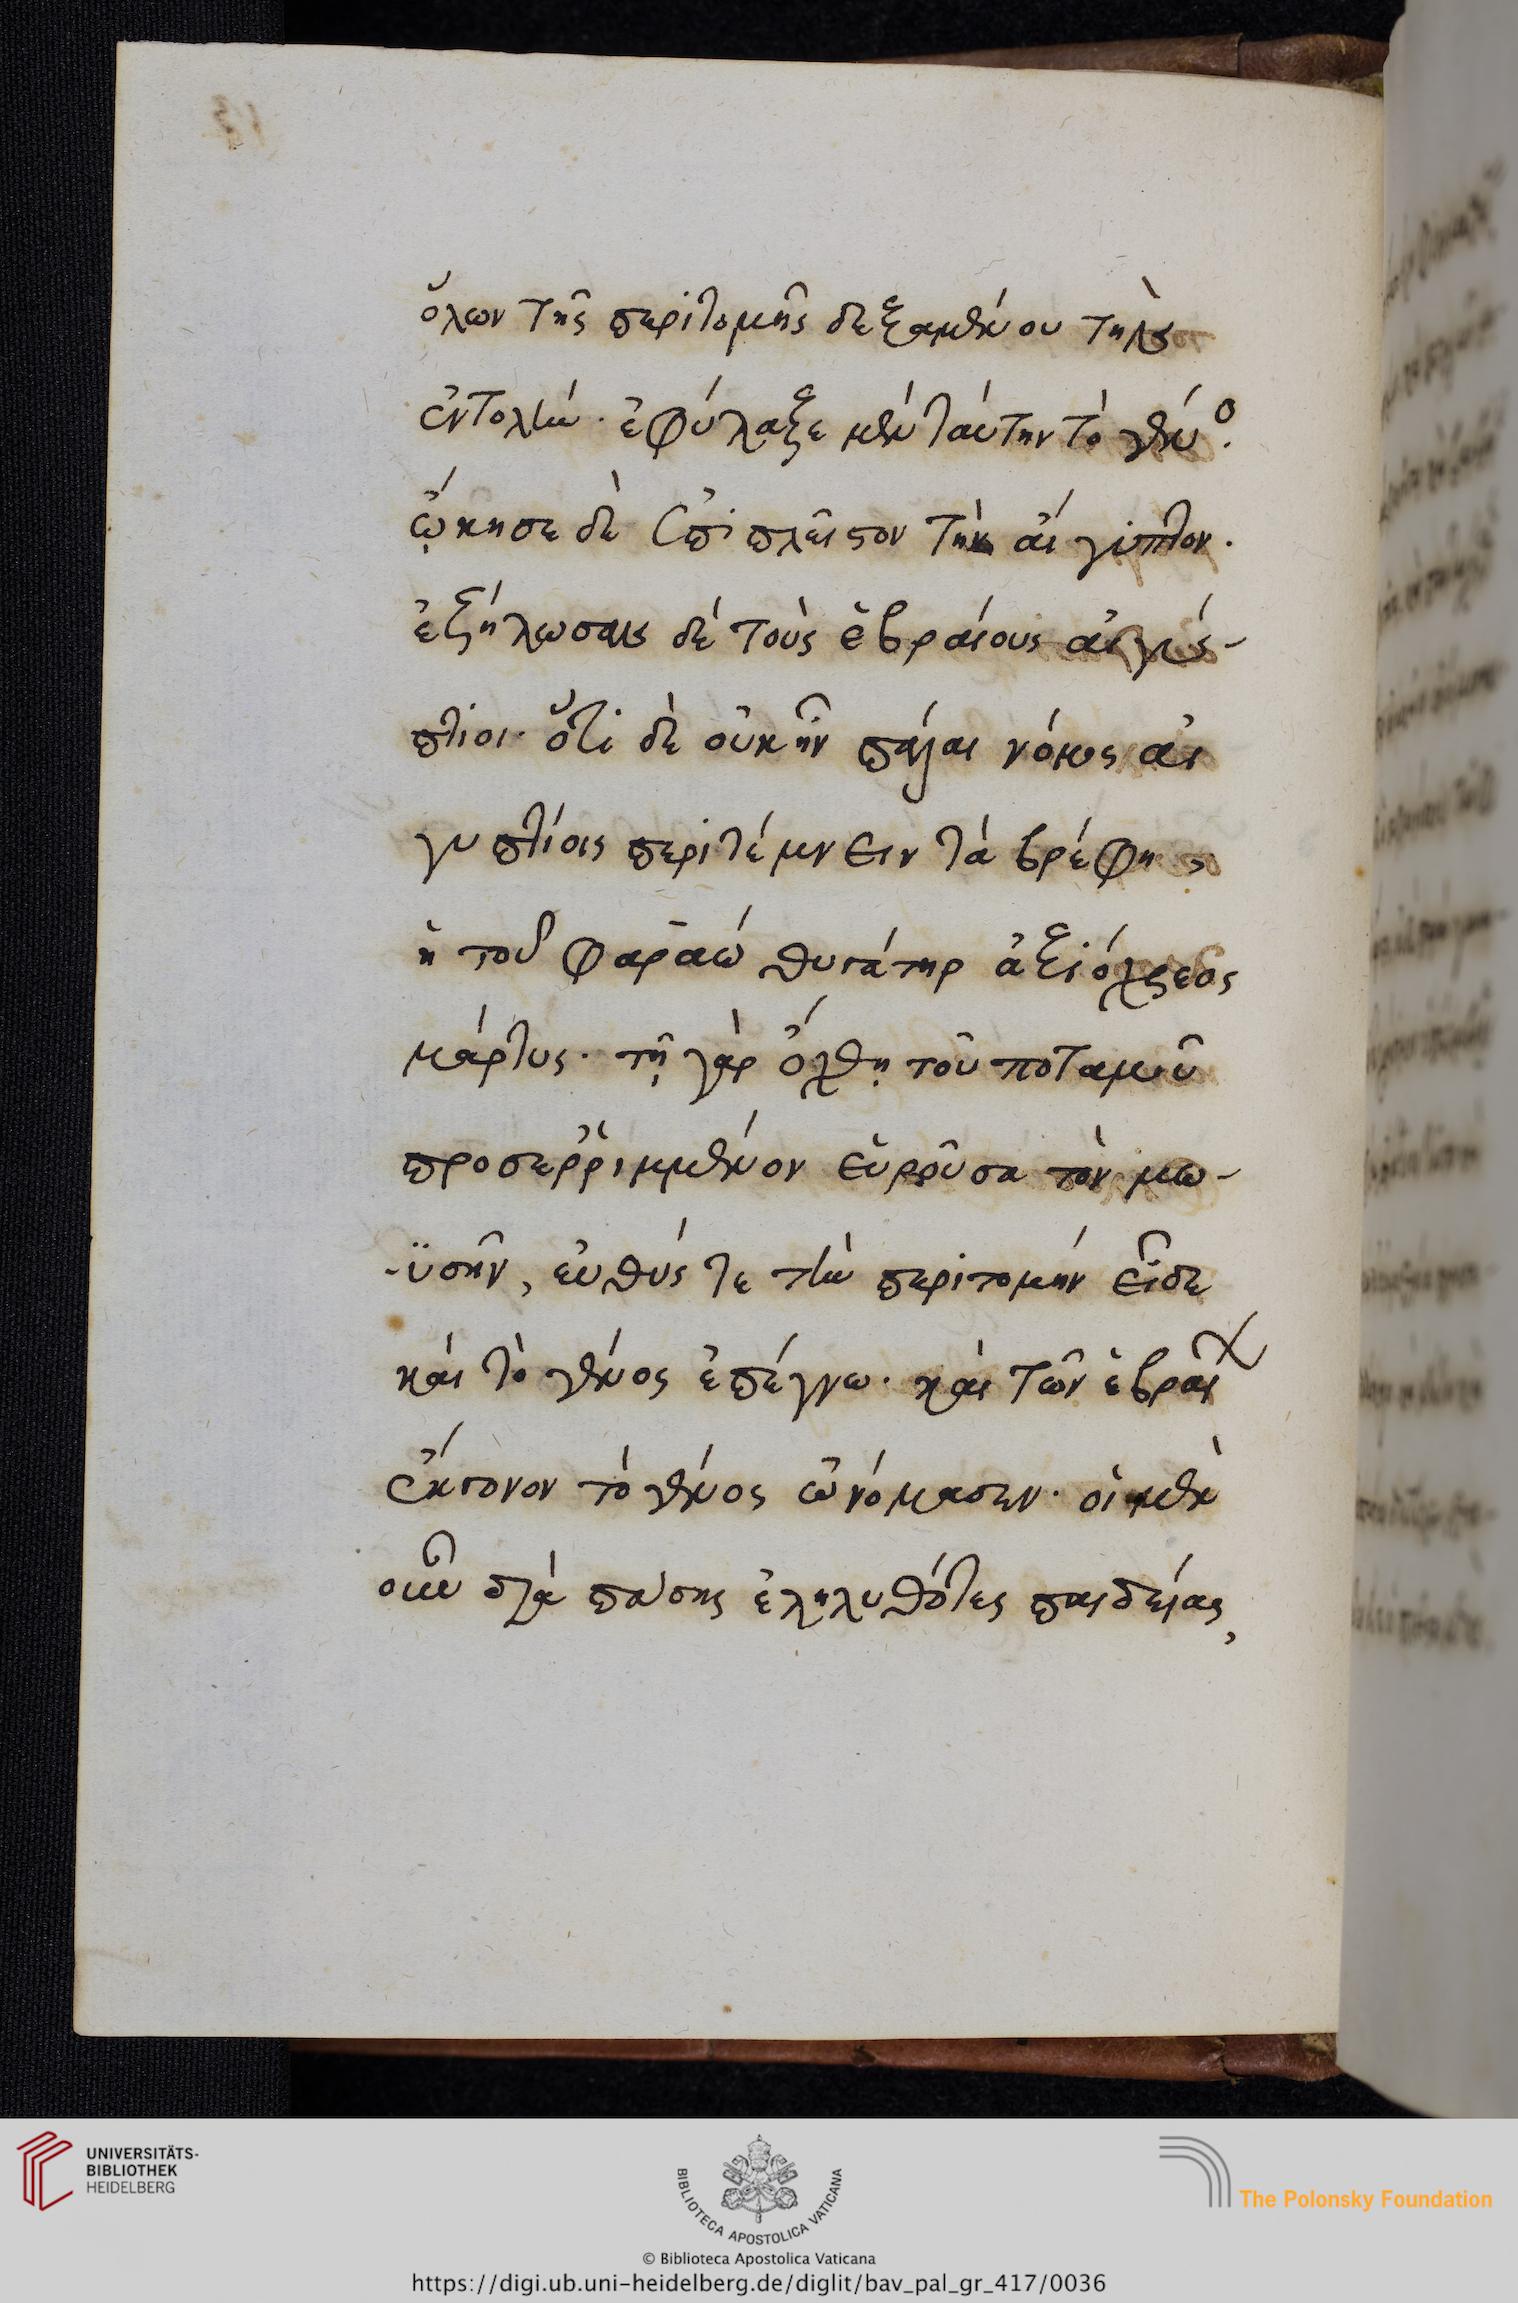 ὅλων τῆς περιτομῆς δεξαμένου τὴν
ἐντολήν· ἐφύλαξε μὲν ταύτην τὸ γένο.
ᾤκησε δὲ ἐπὶ πλεῖστον τὴν αἴγυπτον.
ἐζήλωσαν δὲ τοὺς ἑβραίους αἰγύ-
πτιοι· ὅτι δὲ οὐκ ἦν πάλαι νόμος αἰ
γυπτίοις περιτέμνειν τὰ βρέφη,
ἡ τοῦ φαραὼ θυγάτηρ ἀξιόχρεος
μάρτυς· τῇ γὰρ ὄχθῃ τοῦ ποταμοῦ
προσερριμμένον εὑροῦσα τὸν μω-
-ϋσῆν, εὐθύς τε τὴν περιτομήν εἶδε
καὶ τὸ γένος ἐπέγνω· καὶ τῶν ἑβραί
ἔκγονον τὸ γένος ὠνόμασεν· οἱ μὲν
οὖν διὰ πάσης ἐληλυθότες παιδείας,
13
UNIVERSITÄTS-
BIBLIOTHEK
HEIDELBERG
BIBLIOTECA APOSTOLICA VATICANA
© Biblioteca Apostolica Vaticana
The Polonsky Foundation
https://digi.ub.uni-heidelberg.de/diglit/bav_pal_gr_417/0036